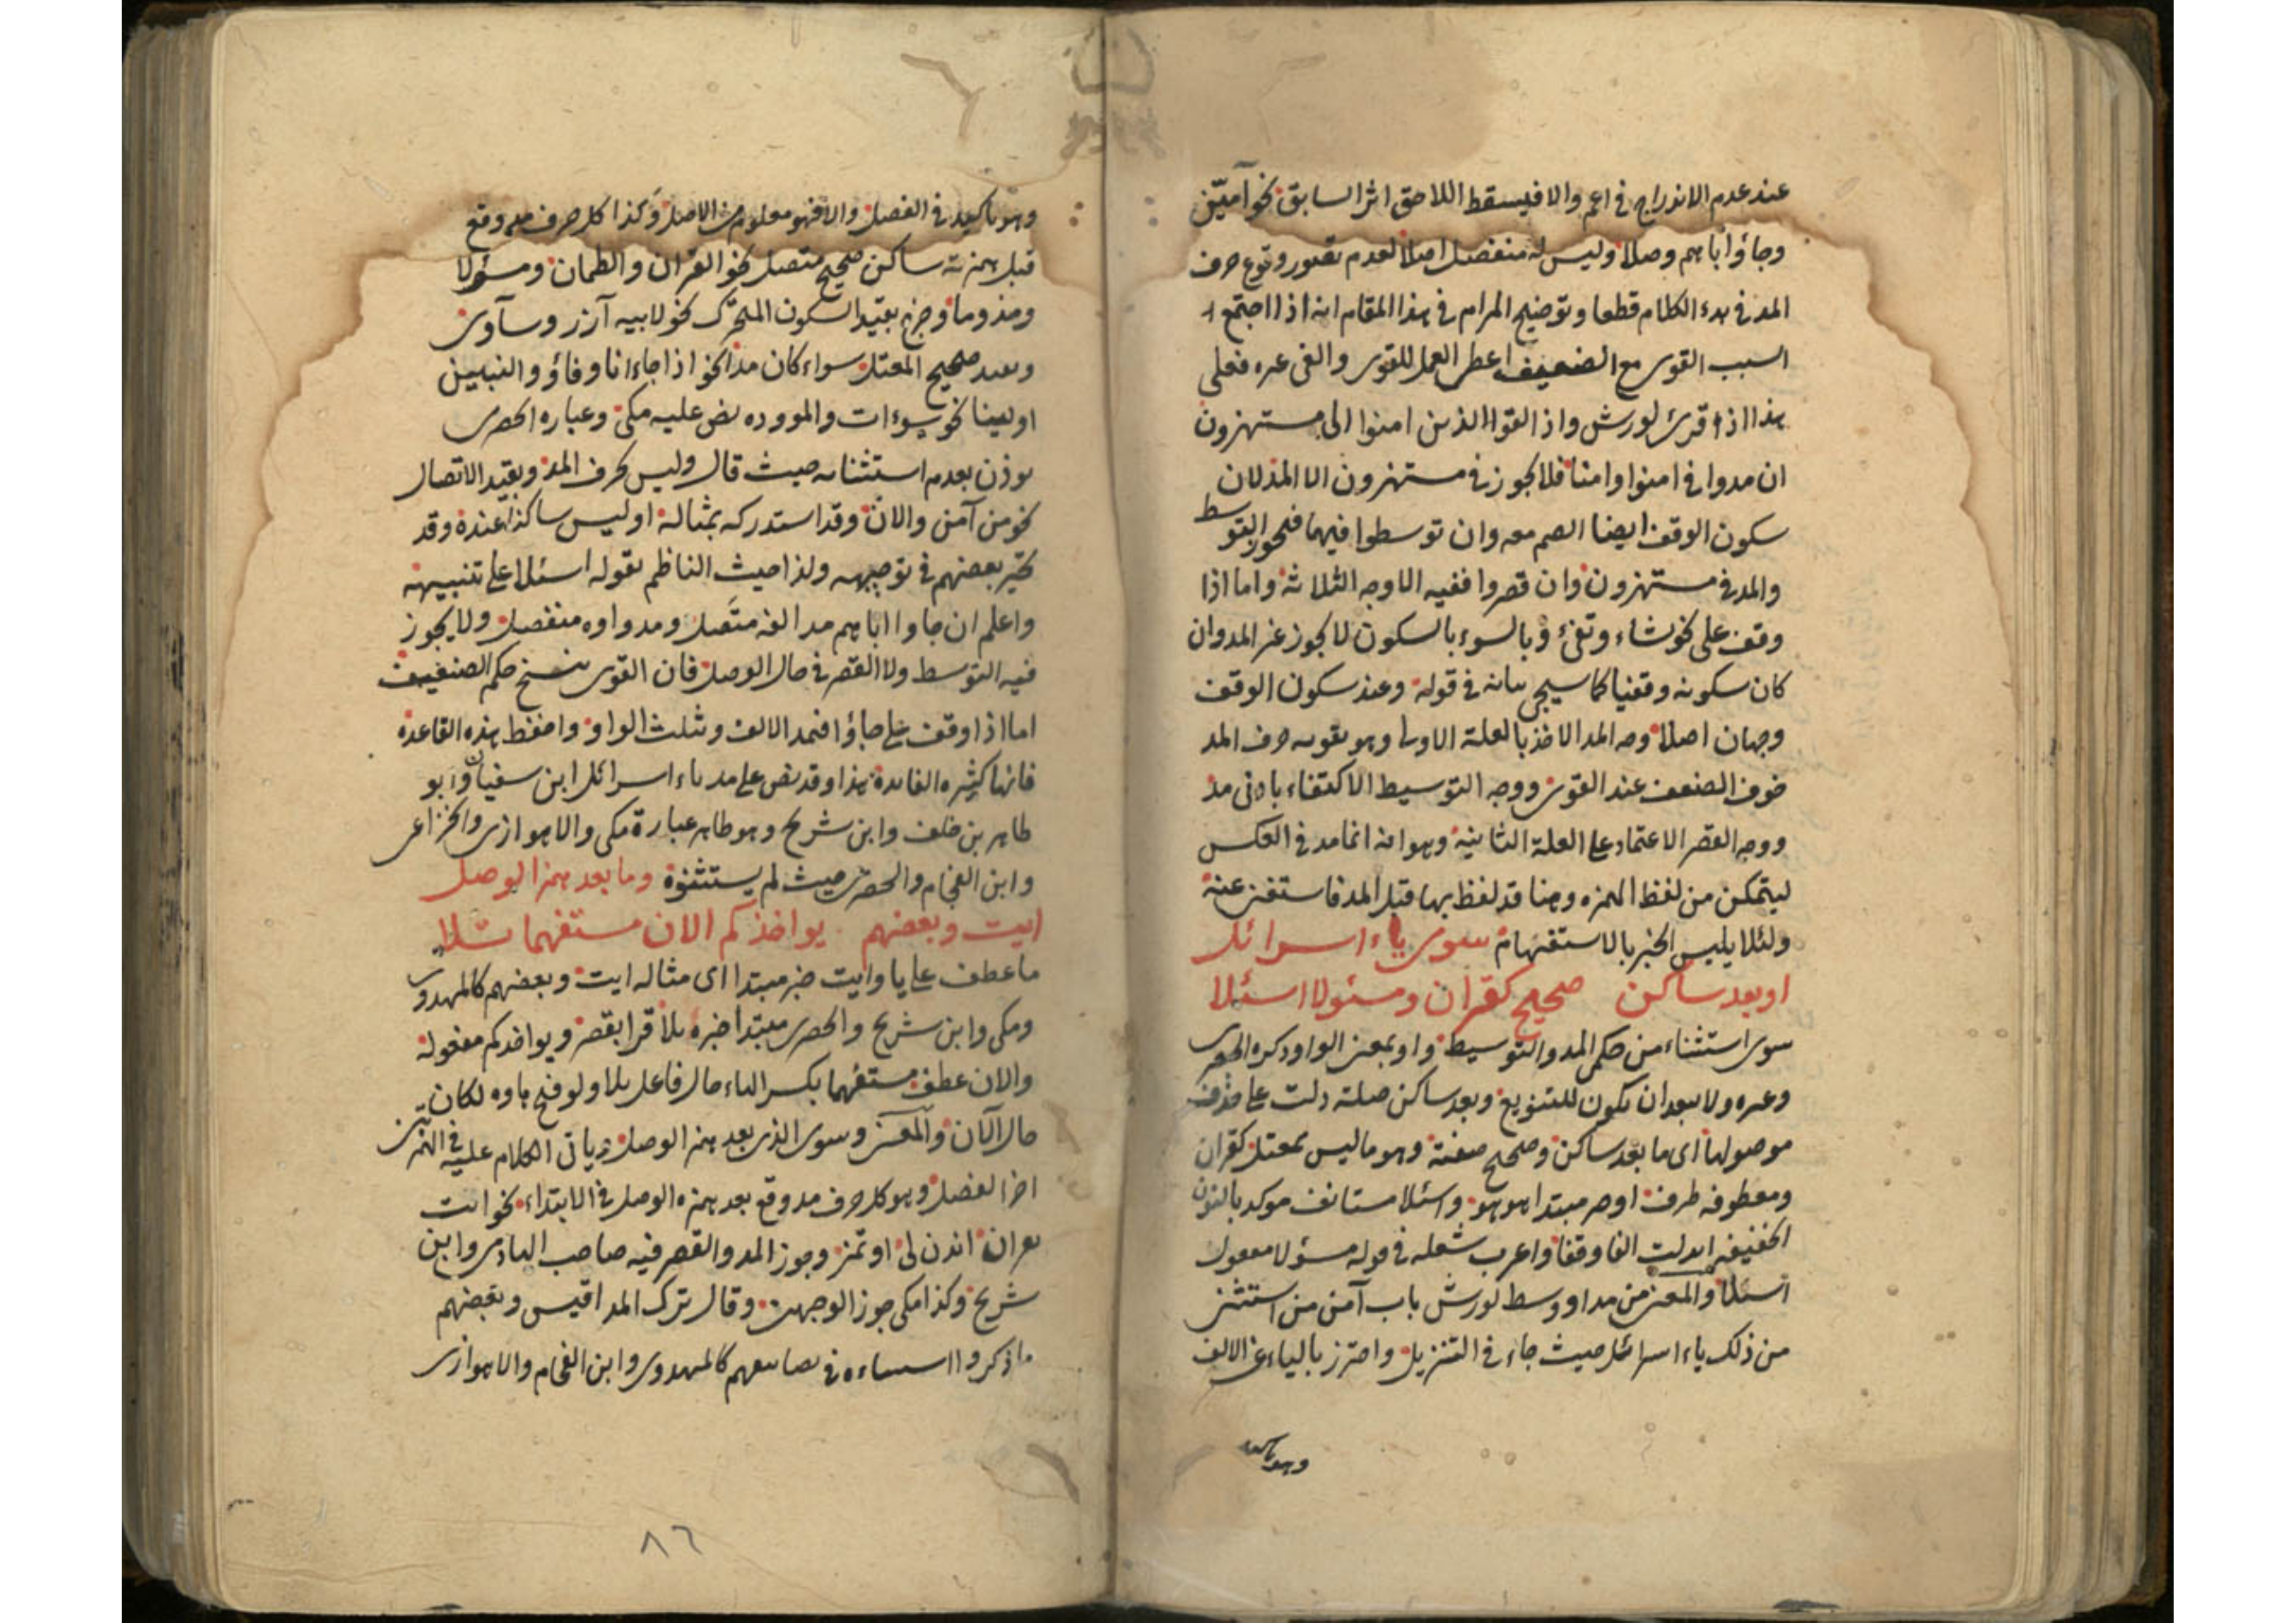 عند عدم الاندراج في اعم والا فيسقط اللاحق اثر السابق نحو آمّين
وجاؤا اباهم وصلا وليس له منفصل اصلا لعدم تصور وقوع حرف
المد في بدء الكلام قطعا وتوضيح المرام في هذا المقام انه اذا اجتمع
السبب القوى مع الضعيف اعطى العمل للقوى والغى غيره فعلى
هذا اذا قرئ لورش واذا لقوا الذين امنوا الى مستهزون
ان مدوا في امنوا وامنا فلا يجوز في مستهزون الا المد لان
سكون الوقف ايضا انضم معه وان توسطوا فيهما فيجوز التوسط
والمد في مستهزون وان قصروا ففيه الاوجه الثلاثة واما اذا
وقف على نحو نشاء وتفئ وبالسوء بالسكون لا يجوز غير المد وان
كان سكونه وقفيا كما سيجئ بيانه في قوله وعند سكون الوقف
وجهان اصلا وجه المد الاخذ بالعلة الاولى وهو تقويه حرف المد
خوف الضعف عند القوى ووجه التوسيط الاكتفاء بادنى مد
ووجه القصر الاعتماد على العلة الثانية وهو انه انما مد في العكس
ليتمكن من لفظ الهمزه وهنا قد لفظ بها قبل المد فاستغنى عنه
ولئلا يلبس الخبر بالاستفهام سوى ياء اسرائل
او بعد ساكن صحيح كقران ومسئولا اسئلا
سوى استثناء من حكمى المد والتوسيط واو بمعنى الواو ذكره الجعبرى
وغيره ولا يبعد ان يكون للتنويع وبعد ساكن صلته دلت على حذف
موصولها اى ما بعد ساكن وصحيح صفته وهو ما ليس بمعتل كقران
ومعطوفه ظرف او خبر مبتدا هو هو واسئلا مستانف موكد بالنون
الخفيفه ابدلت الفا وقفا واعرب شعله في قوله مسؤلا معمول
اسئلا والمعنى من مد او وسط لورش باب آمن من استثنى
من ذلك ياء اسرائل حيث جاء في التنزيل واحترز بالياء عن الالف
وهو تاكيد
وهو تاكيد في الفصل والا فهو معلوم من الاصل وكذا كل حرف مد وقع
قبل همزته ساكن صحيح متصل نحو القران والظمان ومسؤلا
ومذؤما وخرج بقيد السكون المتحرك نحو لابيه آزر وسآوى
وبعد صحيح المعتل سواء كان مدا نحو اذا جاءانا وفاؤ والنبيين
او لينا نحو سوءات والموودة نص عليه مكى وعباره الحصرى
يوذن بعدم استثنائه حيث قال وليس كحرف المد وبقيد الاتصال
نحو من آمن والان وقد استدركه بمثاله او ليس ساكنا عنده وقد
تحير بعضهم في توجيهه ولذا حيث الناظم بقوله اسئلا على تنبيهه
واعلم ان جاوا اباهم مد الفه متصل ومد واوه منفصل ولا يجوز
فيه التوسط ولا القصر في حال الوصل فان القوى ينسخ حكم الضعيف
اما اذا وقف على جاؤا فيمد الالف وتثلث الواو واحفظ هذه القاعدة
فانها كثيره الفايدة هذا وقد نص على مد ياء اسرائل ابن سفيان وابو
طاهر بن خلف وابن شريح وهو ظاهر عبارة مكى والاهوازى والخزاعى
وابن الفحام والحصرى حيث لم يستثنوه وما بعد همز الوصل
ايت وبعضهم . يواخذكم الان مستفهما تلا
ما عطف على يا وايت خبر مبتدا اى مثاله ايت وبعضهم كالمهدوى
ومكى وابن شريح والحصرى مبتدا خبره تلا قرا بقصر ويواخذكم مفعوله
والان عطف مستفهما بكسر الهاء حال فاعل تلا ولو فتح هاوه لكان
حال الآن والمعنى وسوى الذى بعد همز الوصل وياتى الكلام عليه في الهمزتين
اخر الفصل وهو كل حرف مد وقع بعد همزه الوصل في الابتداء نحو ائت
بقران ائذن لى اوتمن وجوز المد والقصر فيه صاحب الهادى وابن
شريح وكذا مكى جوز الوجهين وقال ترك المد اقيس وبعضهم
ما ذكروا استثناءه في تصانيفهم كالمهدوى وابن الفحام والاهوازى
٨٦